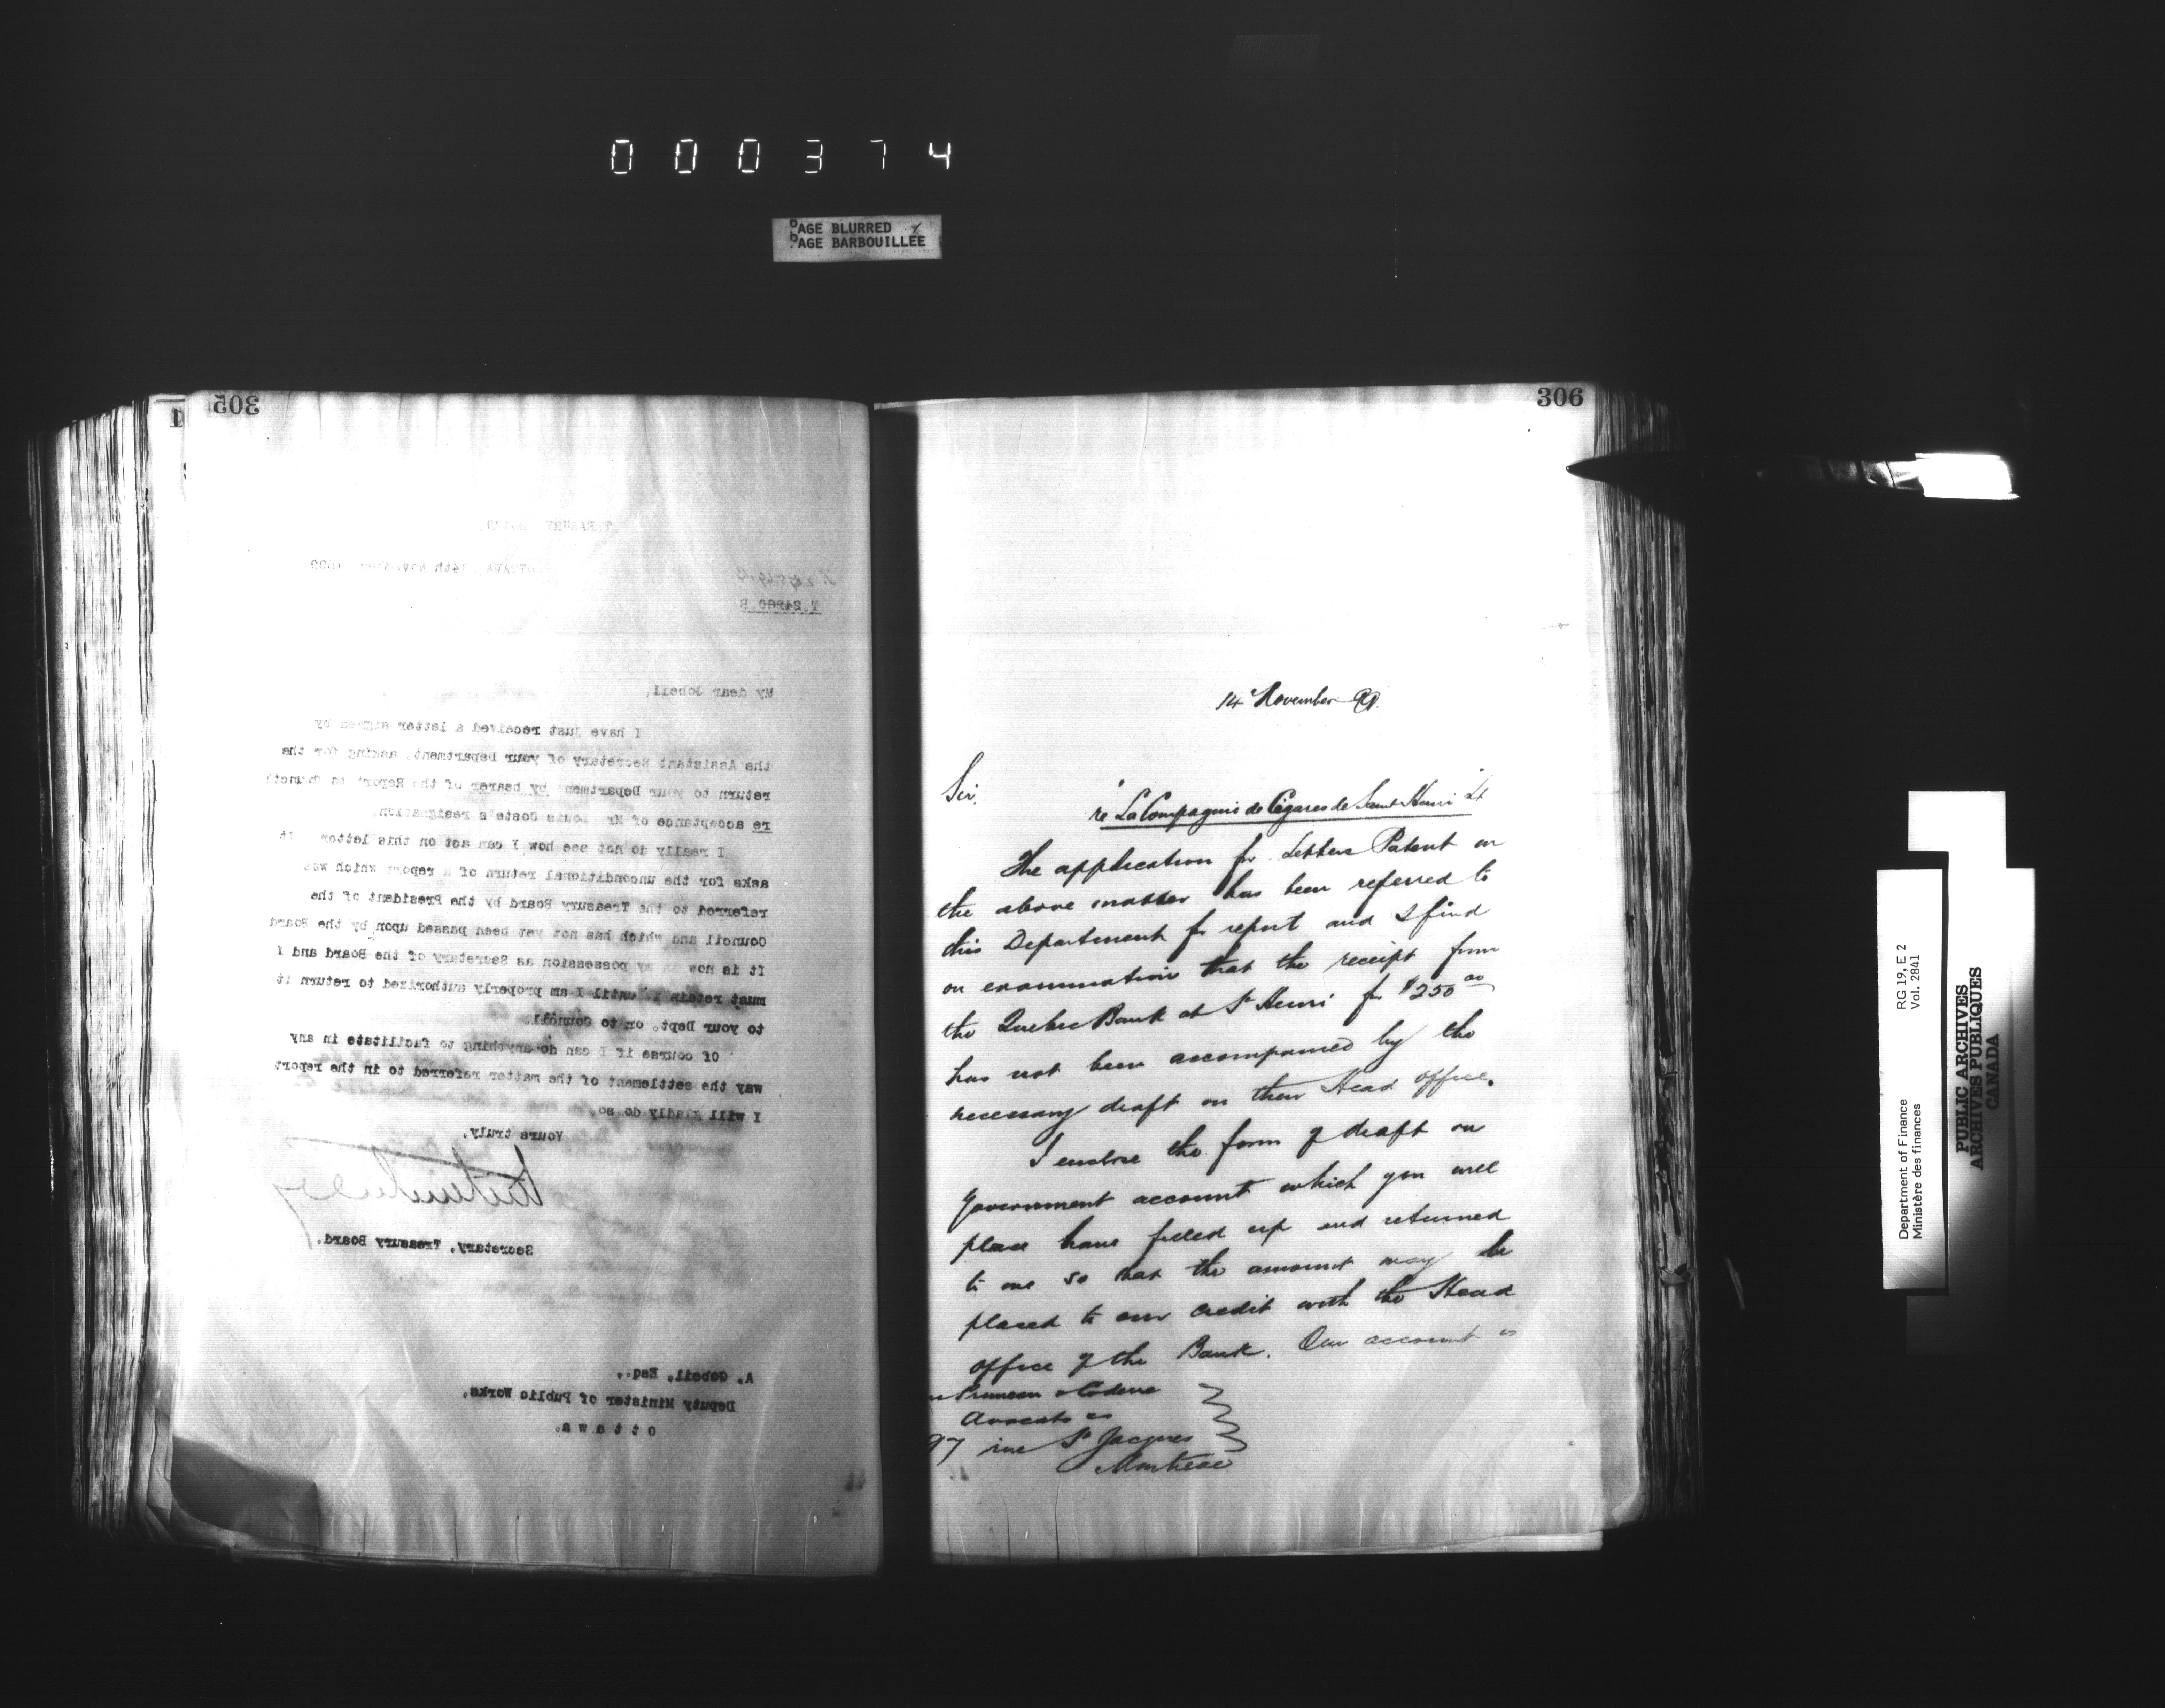 000374
PAGE BLURRED
PAGE BARBOUILLÉE
305
TREASURY BOARD
OTTAWA, 14th November 1899
T. 24860 B
My dear Gobeil,
I have just received a letter signed by
the Assistant Secretary of your Department, asking for the
return to your Department by bearer of the Report to Council
re acceptance of Mr. Louis Coste's resignation.
I really do not see how I can act on this letter. It
asks for the unconditional return of a report which was
referred to the Treasury Board by the President of the
Council and which has not yet been passed upon by the Board
It is now in my possession as Secretary of the Board and I
must retain it until I am properly authorized to return it
to your Dept. or to Council.
Of course if I can do anything to facilitate in any
way the settlement of the matter referred to in the report
I will gladly do so.
Yours truly,
Secretary, Treasury Board.
A. Gobeil, Esq.,
Deputy Minister of Public Works,
Ottawa.
306
14 November 99.
Sir,
re La Compagnie de Cigares de Saint Henri Lt
The application for Letters Patent in
the above matter has been referred to
this Department for report and I find
on examination that the receipt from
the Quebec Bank at St Henri for $250 00
has not been accompanied by the
necessary draft on their Head office.
I enclose the form of draft on
Government account which you will
please have filled up and returned
to me so that the amount may be
placed to our credit with the Head
office of the Bank. Our account is
Avocats
97 rue St Jacques
Montreal
Department of Finance
Ministère des finances
RG 19, E 2
Vol. 2841
PUBLIC ARCHIVES
ARCHIVES PUBLIQUES
CANADA